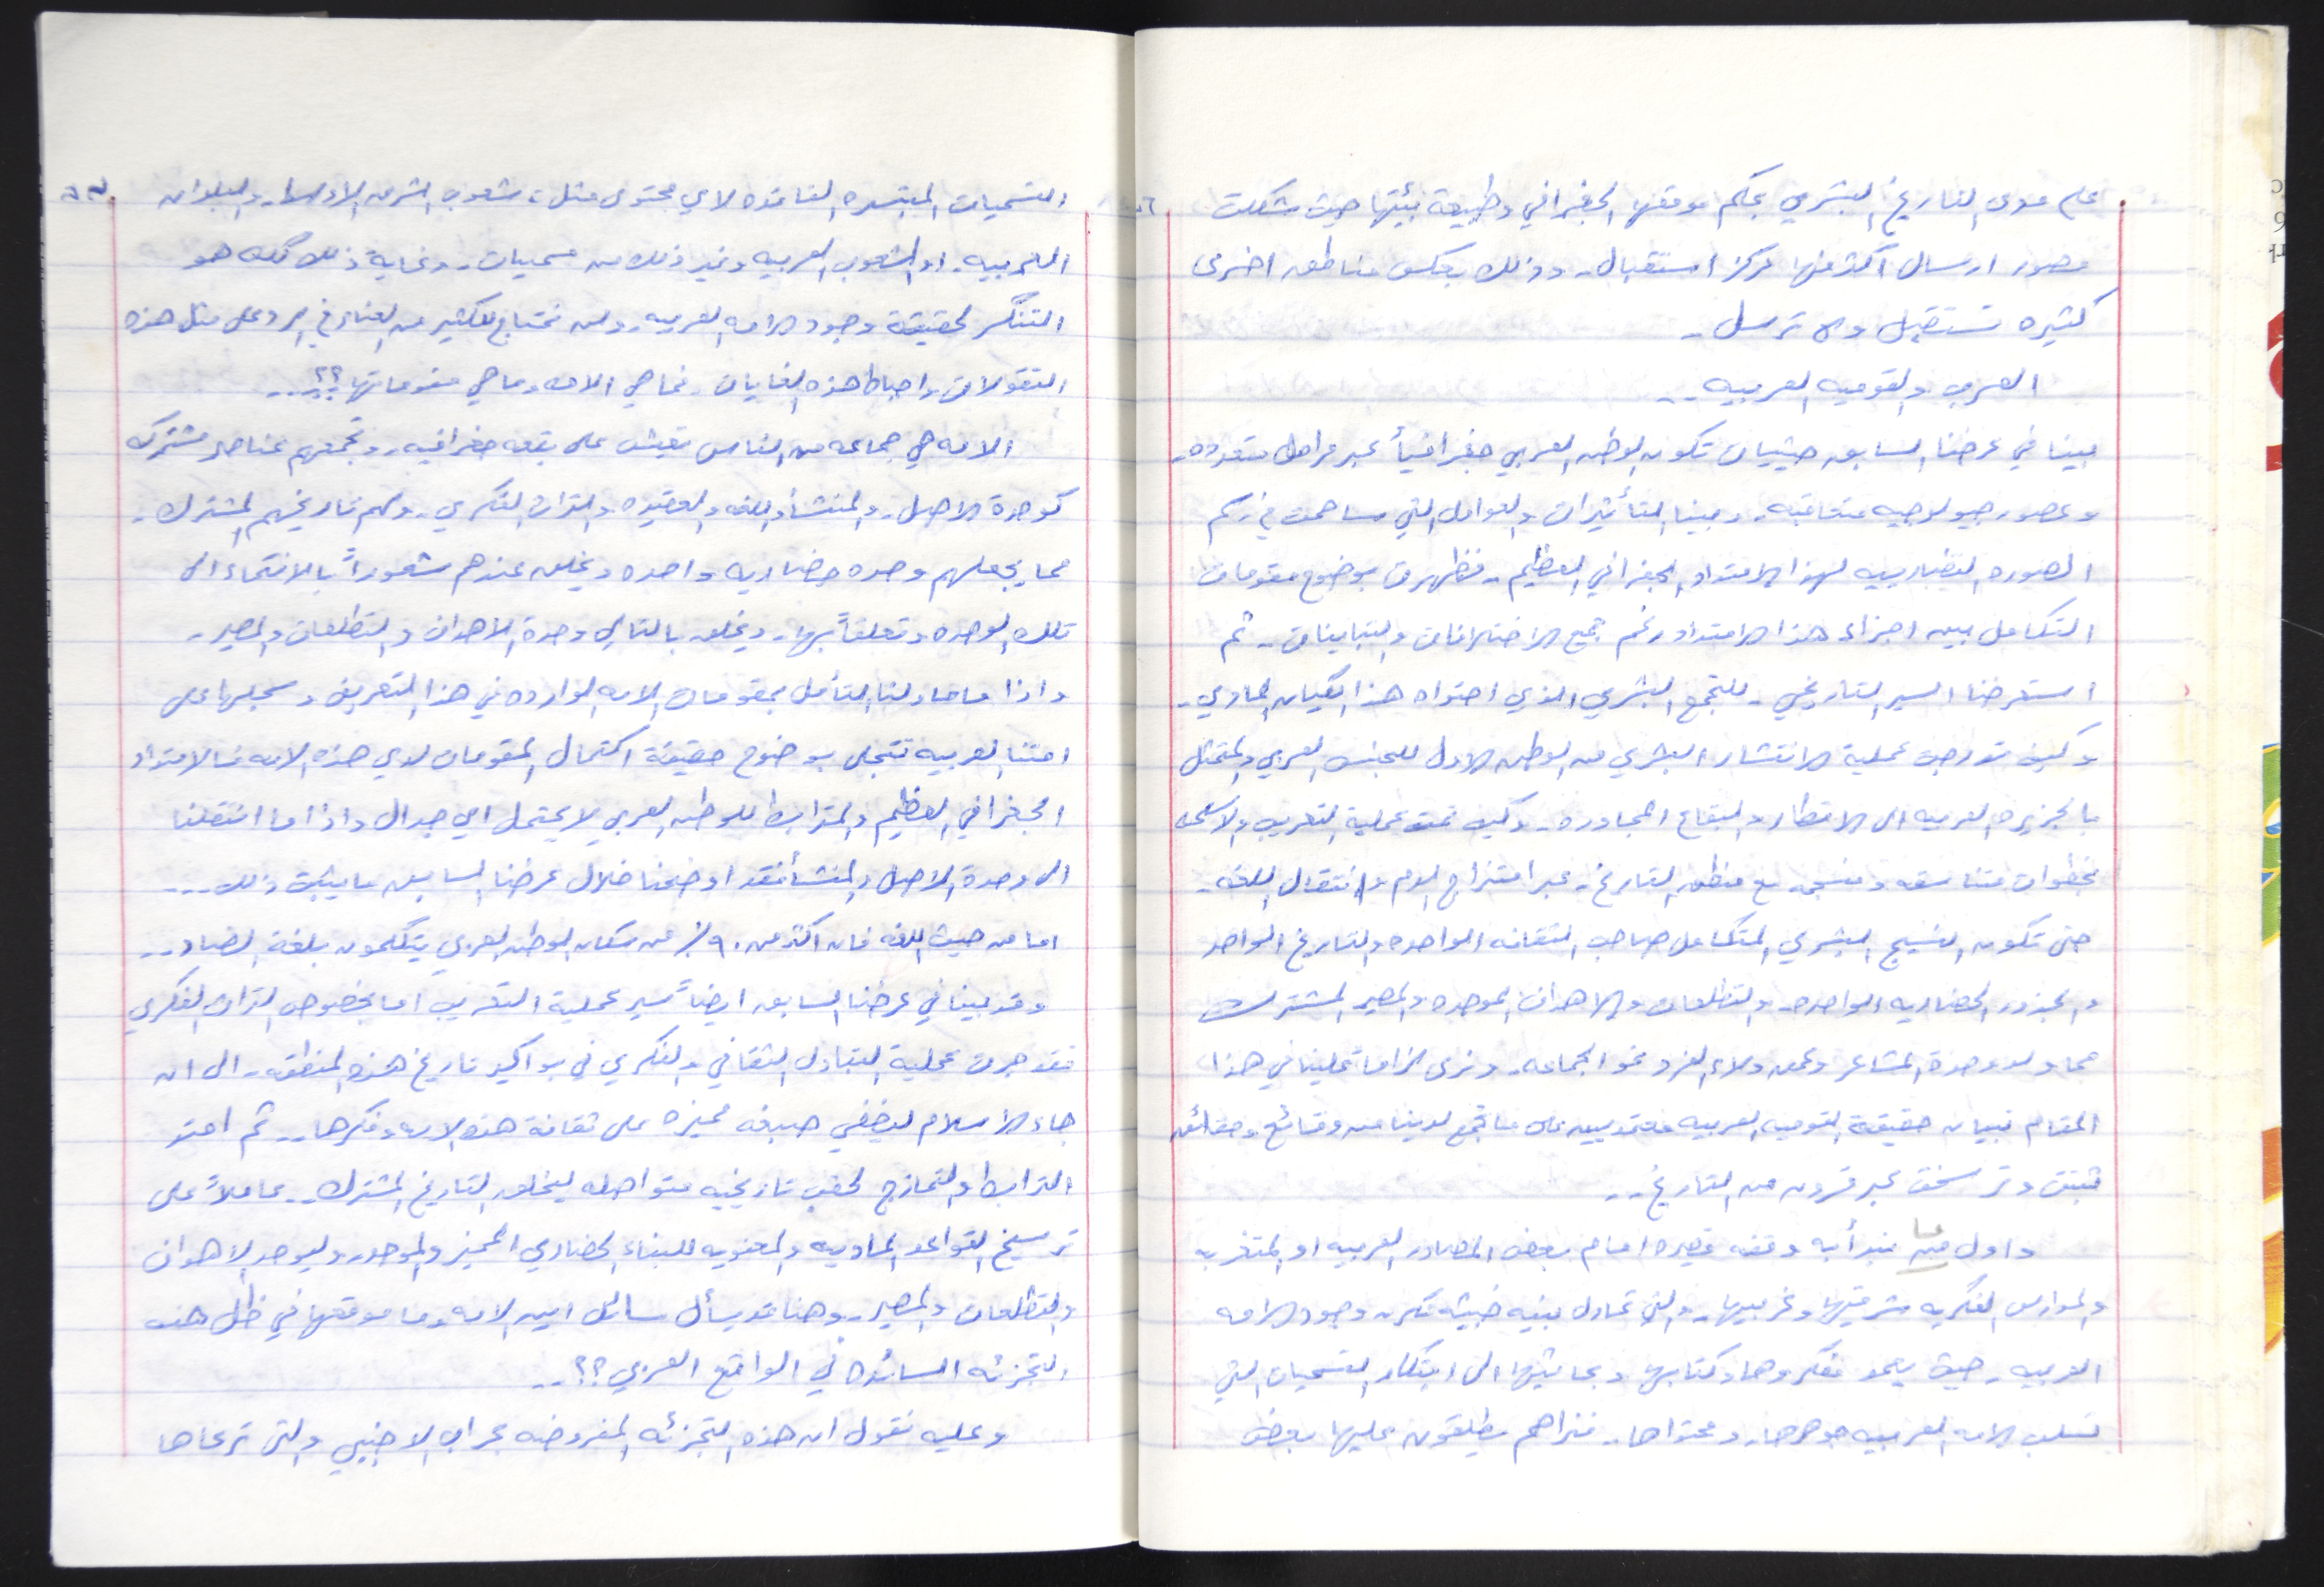 على مدى التاريخ البشري بحكم موقعها الجغرافي وطبيعة بيئتها حيث شكلت
مصدر ارسال اكثر منها مركز استقبال.. وذلك بعكس مناطق اخرى
كثيره تستقبل ولا ترسل ..
العرب والقوميه العربيه ..
بينا في عرضنا السابق حيثيات تكون الوطن العربي جغرافياً عبر مراحل متعدده..
وعصور جيولوجيه متعاقبه.. وبينا التأثيرات والعوامل التي ساهمت في رسم
الصوره التضاريسيه لهذا الامتداد الجغرافي العظيم.. فظهرت بوضوح مقومات
التكامل بين اجزاء هذا الامتداد رغم جميع الاختلافات والتباينات .. ثم
استعرضنا السير التاريخي .. للتجمع البشري الذي احتواه هذا الكيان المادي..
وكيف تدرجت عملية الانتشار البشري من الوطن الاول للجنس العربي والمتمثل
بالجزيره العربيه الى الاقطار والبقاع المجاوره.. وكيف تمت عملية التعريب والاسلمه
بخطوات متناسقه ومنسجمه مع منطق التاريخ.. عبر امتزاج الدم وانتقال اللغه..
حتى تكون النسيج البشري المتكامل صاحب الثقافه الواحده والتاريخ الواحد
والجذور الحضاريه الواحده.. والتطلعات والاهداف الموحده والمصير المشترك
مما ولد وحدة المشاعر وعمق ولاء الفرد نحو الجماعه.. ونرى لزاماً علينا في هذا
المقام تبيان حقيقة القوميه العربيه معتمدين على ما تجمع لدينا من وقائع وحقائق
ثبتت وترسخت عبر قرون من التاريخ ..
واول ما نبدأ به وقفه قصيره امام بعض المصادر العربيه او المتغربه
والمدارس الفكريه شرقيها وغربيها.. والتي تحاول بنيه خبيثه نكران وجود الامه
العربيه.. حيث يعمد مفكروها وكتابها وبحاثيها الى ابتكار التسميات التي
تسلب الامه العربيه جوهرها.. ومحتواها.. فنراهم يطلقون عليها بعض
التسميات المبتسره الفاقده لاي محتوى مثل، شعوب الشرق الاوسط.. والبلدان
العربيه.. او الشعوب العربيه وغير ذلك من مسميات.. وغاية ذلك كله هو
التنكر لحقيقة وجود الامه العربيه.. ولن نحتاج للكثير من العناء في الرد على مثل هذه
التقولات واحباط هذه الغايات.. فما هي الامه وما هي مقوماتها؟؟ ..
الامه هي جماعه من الناس تعيش على بقعه جغرافيه.. وتجمعهم عناصر مشتركه
كوحدة الاصل.. والمنشأ واللغه والعقيده والتراث الفكري.. ولهم تاريخهم المشترك..
مما يجعلهم وحده حضاريه واحده ويخلق عندهم شعوراً بالانتماء الى
تلك الوحده وتعلقاً بها.. ويخلق بالتالي وحدة الاهداف والتطلعات والمصير..
واذا ما حاولنا التأمل بمقومات الامه الوارده في هذا التعريف وسحبها على
امتنا العربيه تتجلى بوضوح حقيقة اكتمال المقومات لدي هذه الامه فالامتداد
الجغرافي العظيم والمترابط للوطن العربي لا يحتمل اي جدال واذا ما انتقلنا
الى وحدة الاصل والمنشأ فقد اوضحنا خلال عرضنا السابق ما يثبت ذلك ...
اما من حيث اللغه فان اكثر من ٩٠٪ من سكان الوطن العربي يتكلمون بلغة الضاد ..
وقد بينا في عرضنا السابق ايضاً سير عملية التعريب اما بخصوص التراث الفكري
فقد جرت عملية التبادل الثقافي والفكري في بواكير تاريخ هذه المنطقه.. الى ان
جاء الاسلام ليضفي صبغه مميزه على ثقافة هذه الامه وفكرها .. ثم امتد
الترابط والتمازج لحقب تاريخيه متواصله ليخلق التاريخ المشترك .. عاملاً على
ترسيخ القواعد الماديه والمعنويه للبناء الحضاري المميز والموحد.. وليوحد الاهداف
والتطلعات والمصير.. وهنا قد يسأل سائل اين الامه وما موقعها في ظل هذه
التجزئه السائده في الواقع العربي؟؟ ..
وعليه نقول ان هذه التجزئه المفروضه بحراب الاجنبي والتي ترعاها